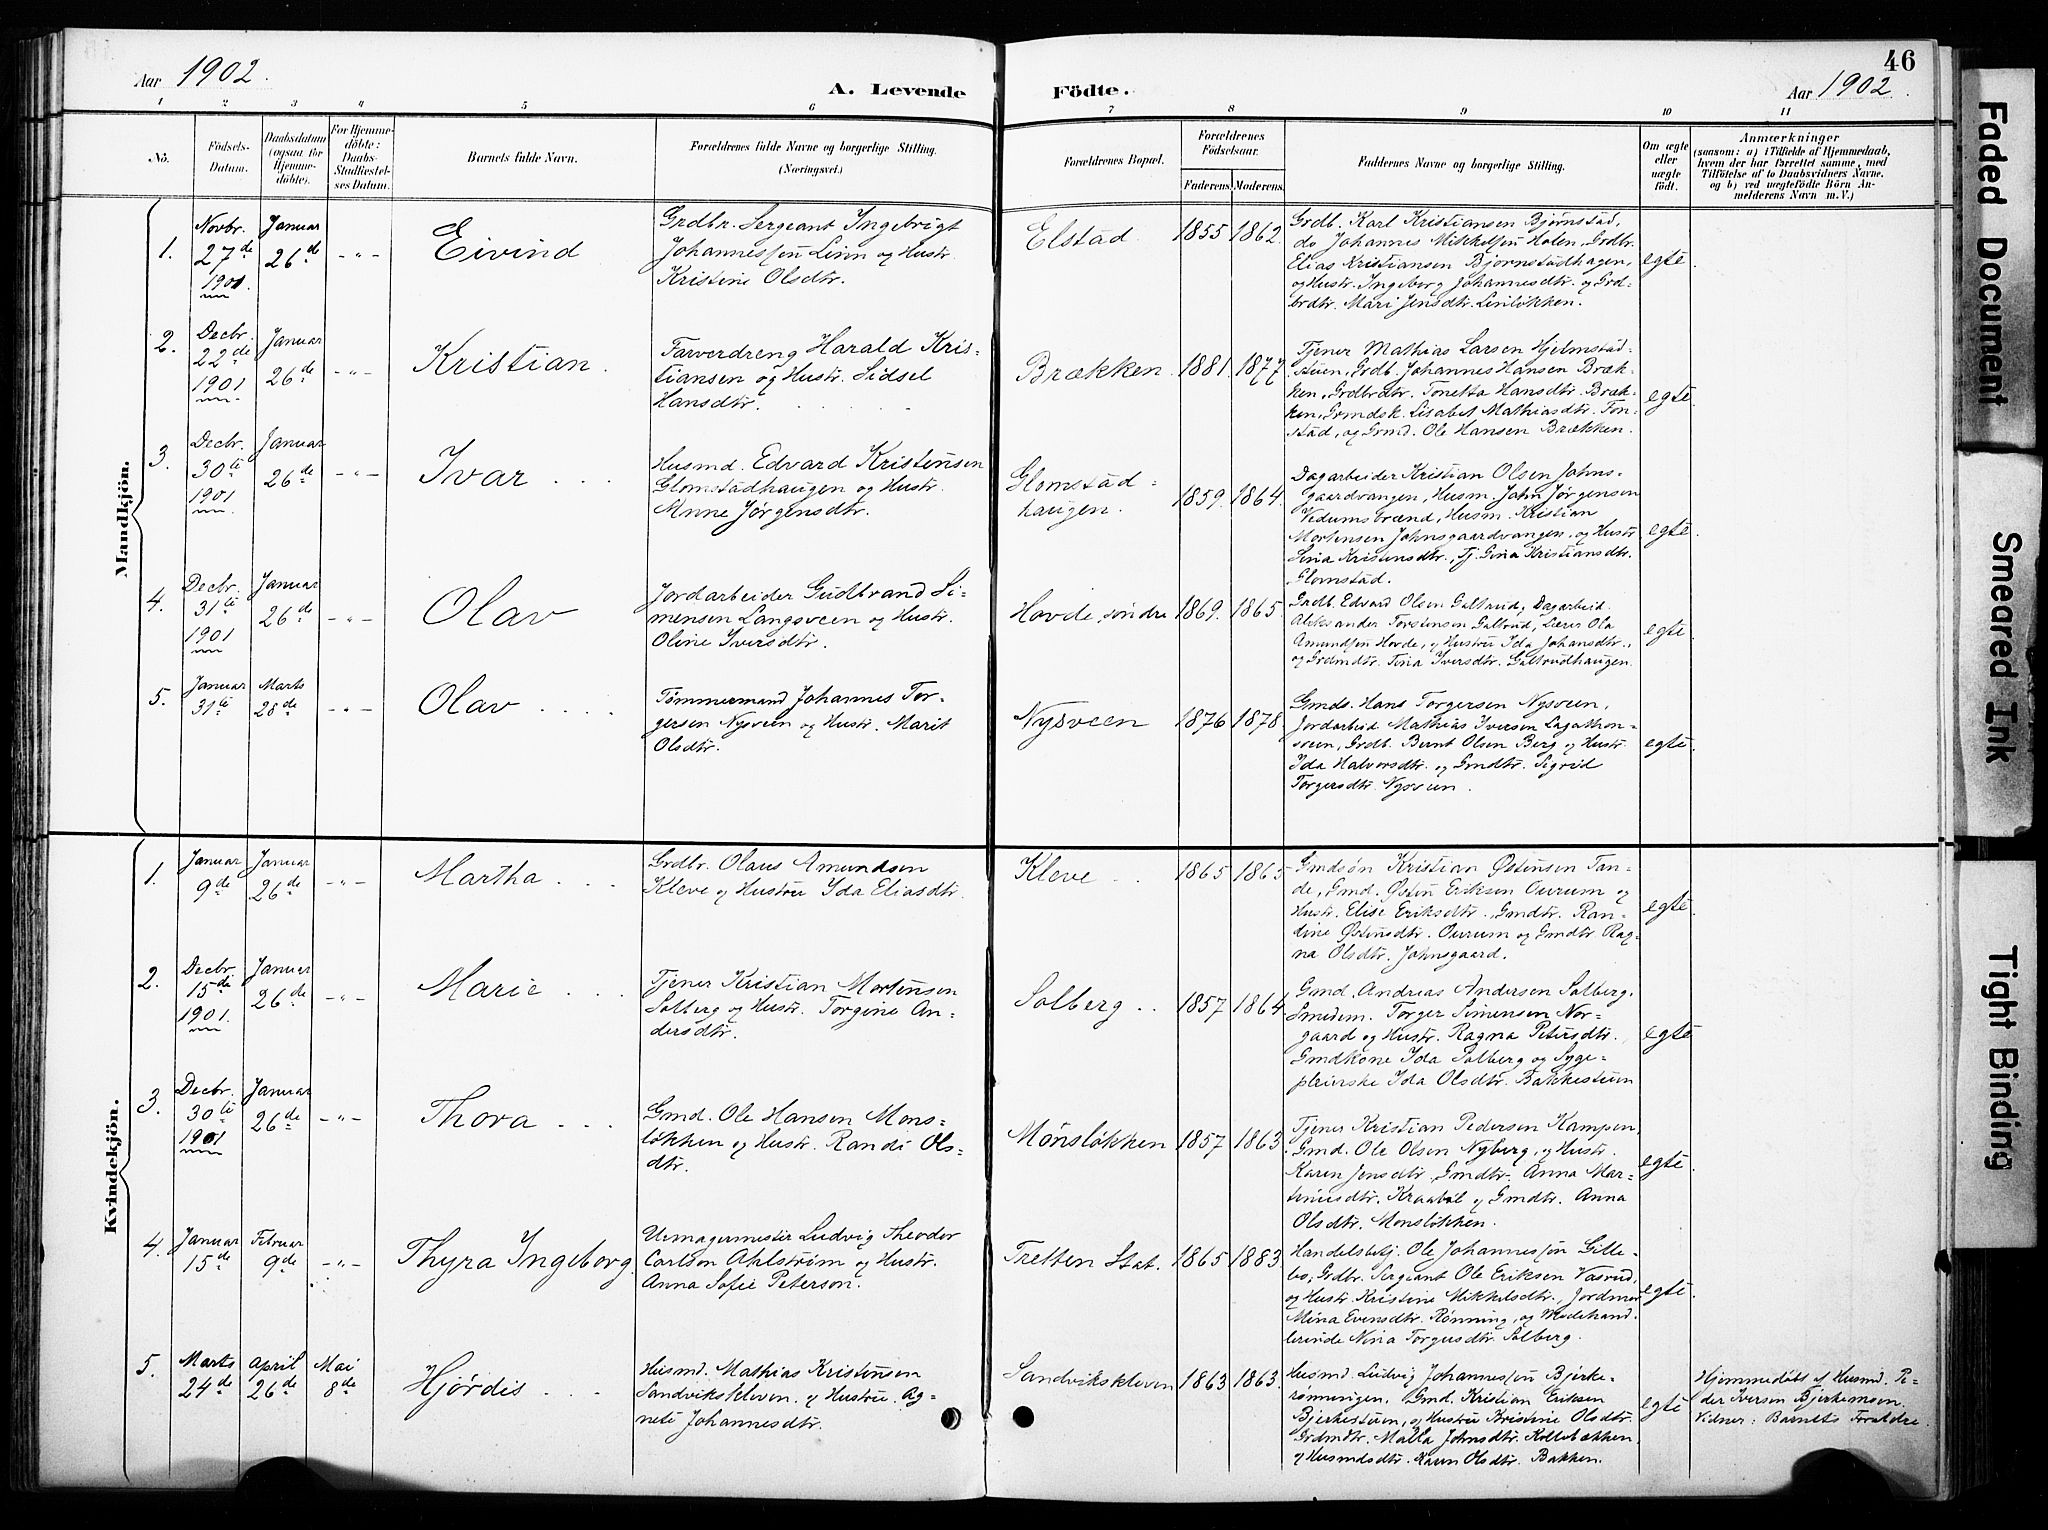 46
Aar 1902.
A. Levende Födte.
Aar 1902.
1 2 3 4 5 6 7 8 9 10 11
No.
Födsels-
Datum.
Daabsdatum
(ogsaa for
Hjemme-
döbte).
For Hjemme-
döbte:
Daabs-
Stadfæstel-
ses Datum.
Barnets fulde Navn.
Forældrenes fulde Navne og borgerlige Stilling.
(Næringsvei.)
Forældrenes Bopæl.
Forældrenes
Födselsaar.
Faderens. Moderens.
Faddernes Navne og borgerlige Stilling.
Om ægte
eller
uægte
födt.
Anmærkninger
(saasom: a) i Tilfælde af Hjemmedaab,
hvem der har forrettet samme, med
Tilföielse af to Daabsvidners Navne.
og b) ved uægtefödte Börn An-
melderens Navn m. V.)
Mandkjön.
1.
Novbr.
27de
1901.
Januar
26de
-"-
Eivind
Grdbr. Sergeant Ingebrigt
Johannessen Linn og Hustr.
Kristine Olsdtr.
Elstad
1855 1862.
Grdb. Karl Kristiansen Bjørnstad,
do Johannes Mikkelsen Holen, Grdbr.
Elias Kristiansen Bjørnstadhagen,
og Hustr. Ingeborg Johannesdtr. og Grd-
brdtr. Mari Jensdtr. Linløkken.
egte.
2.
Decbr.
22de
1901
Januar
26de
-"-
Kristian
Farverdreng Harald Kris-
tiansen og Hustr. Sidsel
Hansdtr.
Brækken
1881. 1877.
Tjener Mathias Larsen Hjelmstad-
stuen, Grdb. Johannes Hansen Bræk-
ken, Grdbrdtr. Tonetta Hansdtr. Bræk-
ken, Grmdsk. Lisabet Mathiasdtr. Ton-
stad, og Grmd. Ole Hansen Brækken.
egte.
3.
Decbr.
30te
1901
Januar
26de
-"-
Ivar
Husmd. Edvard Kristensen
Glomstadhaugen og Hustr.
Anne Jørgensdtr.
Glomstad-
haugen.
1859. 1864.
Dagarbeider Kristian Olsen Johns-
gaardvangen, Husm. John Jørgensen
Vedumsbrænd, Husm. Kristian
Mortensen Johnsgaardvangen, og Hustr.
Lina Kristensdtr., Tj. Gina Kristiansdtr.
Glomstad.
egte.
4.
Decbr.
31te
1901
Januar
26de
-"-
Olav
Jordarbeider Gudbrand Si-
mensen Langsveen og Hustr.
Oline Iversdtr.
Hovde, søndre
1869. 1865.
Grdb. Edvard Olsen Galtrud, Dagarbeid.
Aleksander Torstensen Galtrud, Lærer Ola
Amundsen Hovde, og Hustru Ida Johansdtr.,
og Grdmdtr. Tina Iversdtr. Galtrudhaugen.
egte.
5.
Januar
31te
Marts
28de
-"-
Olav
Tømmermand Johannes Tor-
gersen Nysveen og Hustr. Marit
Olsdtr.
Nysveen
1876 1878.
Gmds. Hans Torgersen Nysveen,
Jordarbeid. Mathias Iversen Lagathon-
sveen, Grdb. Bernt Olsen Berg og Hustr.
Ida Halvorsdtr. og Gmdtr. Sigrid
Torgersdtr. Nysveen.
egte.
Kvindekjön.
1.
Januar
9de
Januar
26de
-"-
Martha
Grdbr. Olaus Amundsen
Kleve og Hustru Ida Eliasdtr.
Kleve
1865 1865
Gmdsøn Kristian Østensen Tan-
de, Gmd. Østen Eriksen Ourum og
Hustr. Elise Eriksdtr., Gmdtr. Ran-
dine Østensdtr. Ourum og Gmdtr. Rag-
na Olsdtr. Johnsgaard.
egte.
2.
Decbr.
15de
1901.
Januar
26de
-"-
Marie
Tjener Kristian Mortensen
Solberg og Hustr. Torgine An-
dersdtr.
Solberg
1857 1864
Gmd. Andreas Andersen Solberg,
Smedem. Torger Simensen Nor-
gaard og Hustr. Ragna Petersdtr.,
Gmdkone Ida Solberg og Syge-
pleierske Ida Olsdtr. Bakkestuen
egte
3.
Decbr.
30te
1901
Januar
26de
-"-
Thora
Gmd. Ole Hansen Møns-
løkken og Hustr. Randi Ols-
dtr.
Mønsløkken
1857 1863
Tjener Kristian Pedersen Kampen,
Gmd. Ole Olsen Nyberg, og Hustr.
Karen Jensdtr., Gmdtr. Anna Mar-
tinusdtr. Kraabøl og Gmdtr. Anna
Olsdtr. Mønsløkken.
egte.
4.
Januar
15de
Februar
9de
-"-
Thyra Ingeborg.
Urmagermester Ludvig Theodor
Carlson Ahlstrøm og Hustr.
Anna Sofie Peterson.
Tretten Stat.
1865 1883
Handelsbetj. Ole Johannessen Gille-
bo, Grdbr. Sergeant Ole Eriksen Vasrud,
og Hustr. Kristine Mikkelsdtr., Jordmor
Mina Evensdtr. Rønning, og Modehand-
lerinde Nina Torgersdtr. Solberg.
egte.
5.
Marts
24de
April
26de
Mai
8de
Hjørdis
Husmd. Mathias Kristensen
Sandvikskleven og Hustru Ag-
nete Johannesdtr.
Sandvikskleven
1863 1863.
Husmd. Ludvig Johannessen Bjerke-
rønningen, Gmd. Kristian Eriksen
Bjerkestuen, og Hustru Kristine Olsdtr.
Grdmdtr. Malla Johnsdtr. Kollebækken,
og Husmdsdtr. Karen Olsdtr. Bakken.
egte
Hjemmedøbt af Husmd. Pe-
der Iversen Bjerkemoen.
Vidner: Barnets Forældre.
Faded Document
Smeared Ink
Tight Binding